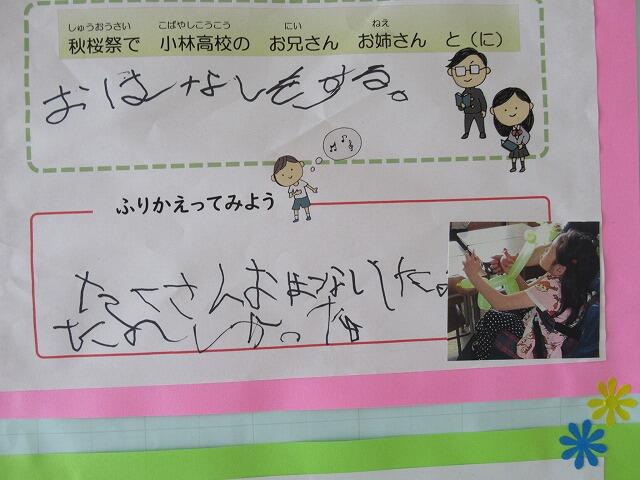 しゅうおうさい こばやしこうこう にい ねえ
秋桜祭で 小林高校の お兄さん お姉さん と（に）
おはなしをする。
ふりかえってみよう
たくさんおはなしした。
たのしかったね